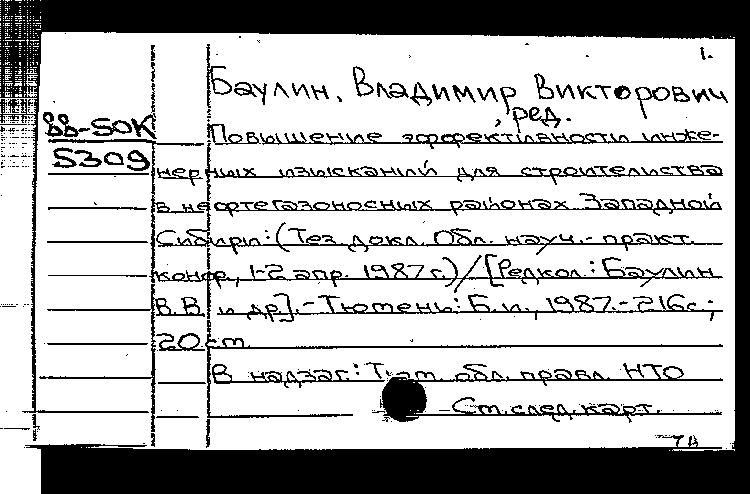 1.
Баулин, Владимир Викторович
, ред.
88-50К
5309
Повышение эффективности инже-
нерных изысканий для строительства
в нефтегазоносных районах Западной
Сибири: (Тез. докл. Обл. науч.-практ.
конф., 1-2 апр. 1987 г.) / [Редкол.: Баулин
В.В. и др]. - Тюмень: Б.и., 1987. - 216с.;
20 см.
В надзаг.: Тюм. обл. правл. НТО
См. след. карт.